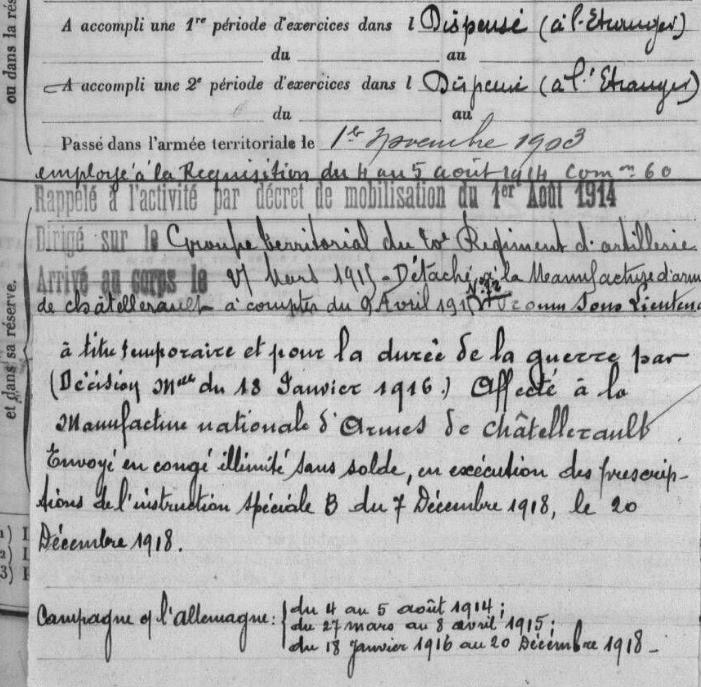 ou dans la rés
A accompli une 1re période d'exercices dans l Dispensé (à l'Etranger)
du au
A accompli une 2e période d'exercices dans l Dispensé (à l'Etranger)
du au
Passé dans l'armée territoriale le 1er Novembre 1903
employé à la Requisition du 4 au 5 août 1914 Comon 60
Rappelé à l'activité par décret de mobilisation du 1er Août 1914
Dirigé sur le Groupe territorial du 20e Régiment d'artillerie
Arrivé au corps le 27 Mars 1915 - Détaché à la Manufacture d'arm
de châtellerault à compter du 9 Avril 1915 Promu Sous Lieutena
à titre temporaire et pour la durée de la guerre par
(Décision Mlle du 18 Janvier 1916.) Affecté à la
Manufacture nationale d'Armes de châtellerault
Envoyé en congé illimité sans solde, en exécution des prescrip-
tions de l'instruction spéciale B du 7 Décembre 1918, le 20
Décembre 1918.
et dans sa réserve.
Campagne c/ l'allemagne: du 4 au 5 août 1914;
du 27 mars au 8 avril 1915;
du 18 janvier 1916 au 20 Décembre 1918 -